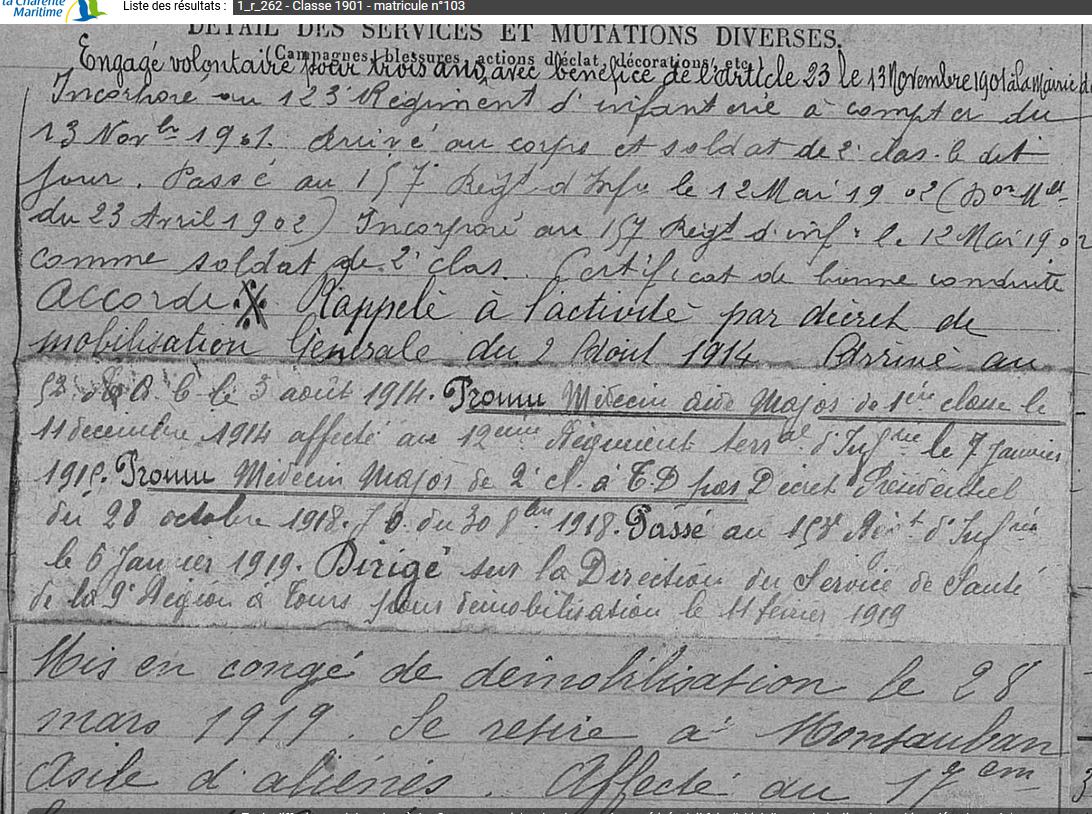 la Charente
Maritime
Liste des résultats : 1_r_262 - Classe 1901 - matricule n°103
DÉTAIL DES SERVICES ET MUTATIONS DIVERSES.
(Campagnes, blessures, actions d'éclat, décorations, etc.)
Engagé volontaire pour trois ans, avec bénéfice de l'article 23 le 13 Novembre 1901 à la Mairie d
Incorporé au 123e Régiment d'infanterie à compter du
13 Novbre 1901. Arrivé au corps et soldat de 2e clas. le dit
jour. Passé au 157e Régt d'Infie le 12 Mai 1902 (
du 23 Avril 1902) Incorporé au 157 Régt d'inf. le 12 Mai 190
comme soldat de 2e clas. Certificat de bonne conduite
Accordé. X Rappelé à l'activité par décret de
mobilisation Générale du 2 Août 1914 Arrivé au
le 3 août 1914. Promu Médecin aide Major de 1ère classe le
11 décembre 1914 affecté au 12ème Régiment terral d'Infrie le 7 Janvier
1915. Promu Médecin Major de 2e cl. à T.D par Décret Présidentiel
du 28 octobre 1918. J.O. du 30 8bre 1918. Passé au 158e Régt d'Infrie
le 6 Janvier 1919. Dirigé sur la Direction du Service de Santé
de la 9e Région à Tours pour démobilisation le 11 février 1919
Mis en congé de démobilisation le 28
mars 1919. Se retire à Montauban
Asile d'aliénés. Affecté au 17em